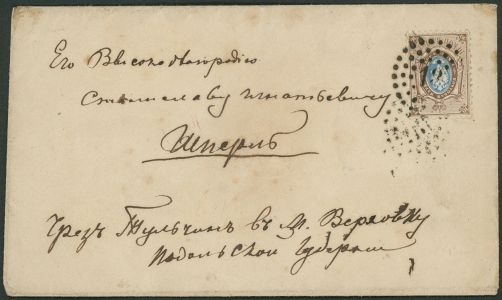 Его Высокоблагородію
Станиславу Игнатьевичу
Шперль
Чрезъ Тульчинъ въ М. Верховку
Подольской Губерніи